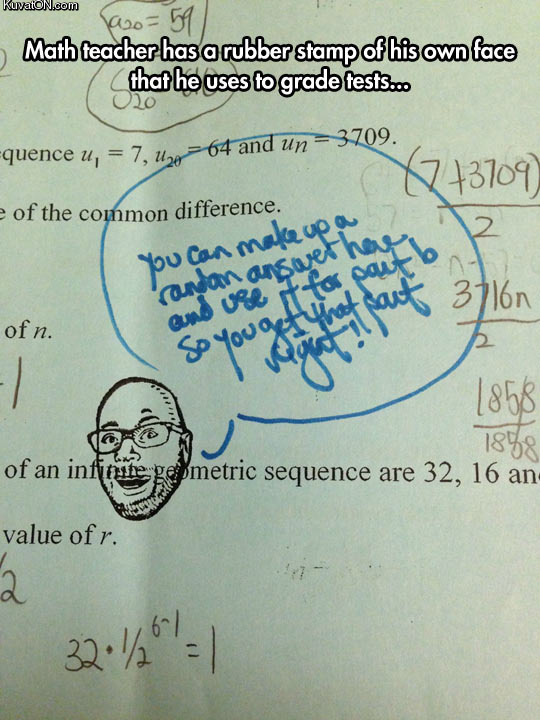 KuvatON.com
a20 = 59
Math teacher has a rubber stamp of his own face
that he uses to grade tests...
S20
equence u1 = 7, u20 = 64 and un = 3709.
(7+3709)
2
e of the common difference.
you can make up a
random answer here
and use it for part b
so you get that part
right!
3716n
2
of n.
1858
1858
of an infinite geometric sequence are 32, 16 an
value of r.
32·1/2^6-1 = 1